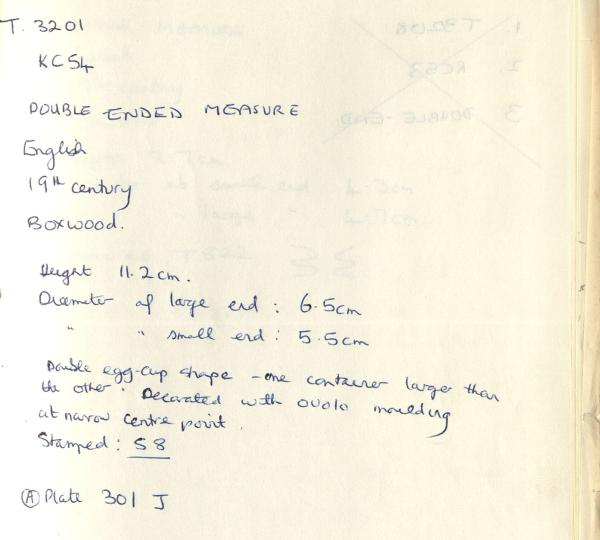 T. 3201
KC54
DOUBLE ENDED MEASURE
English
19th century
BOXWOOD.
Height 11.2cm.
Diameter of large end : 6.5cm
" " small end : 5.5cm
Double egg-cup shape - one container larger than
the other. Decorated with ovolo moulding
at narrow centre point.
Stamped : 58
Ⓐ Plate 301 J